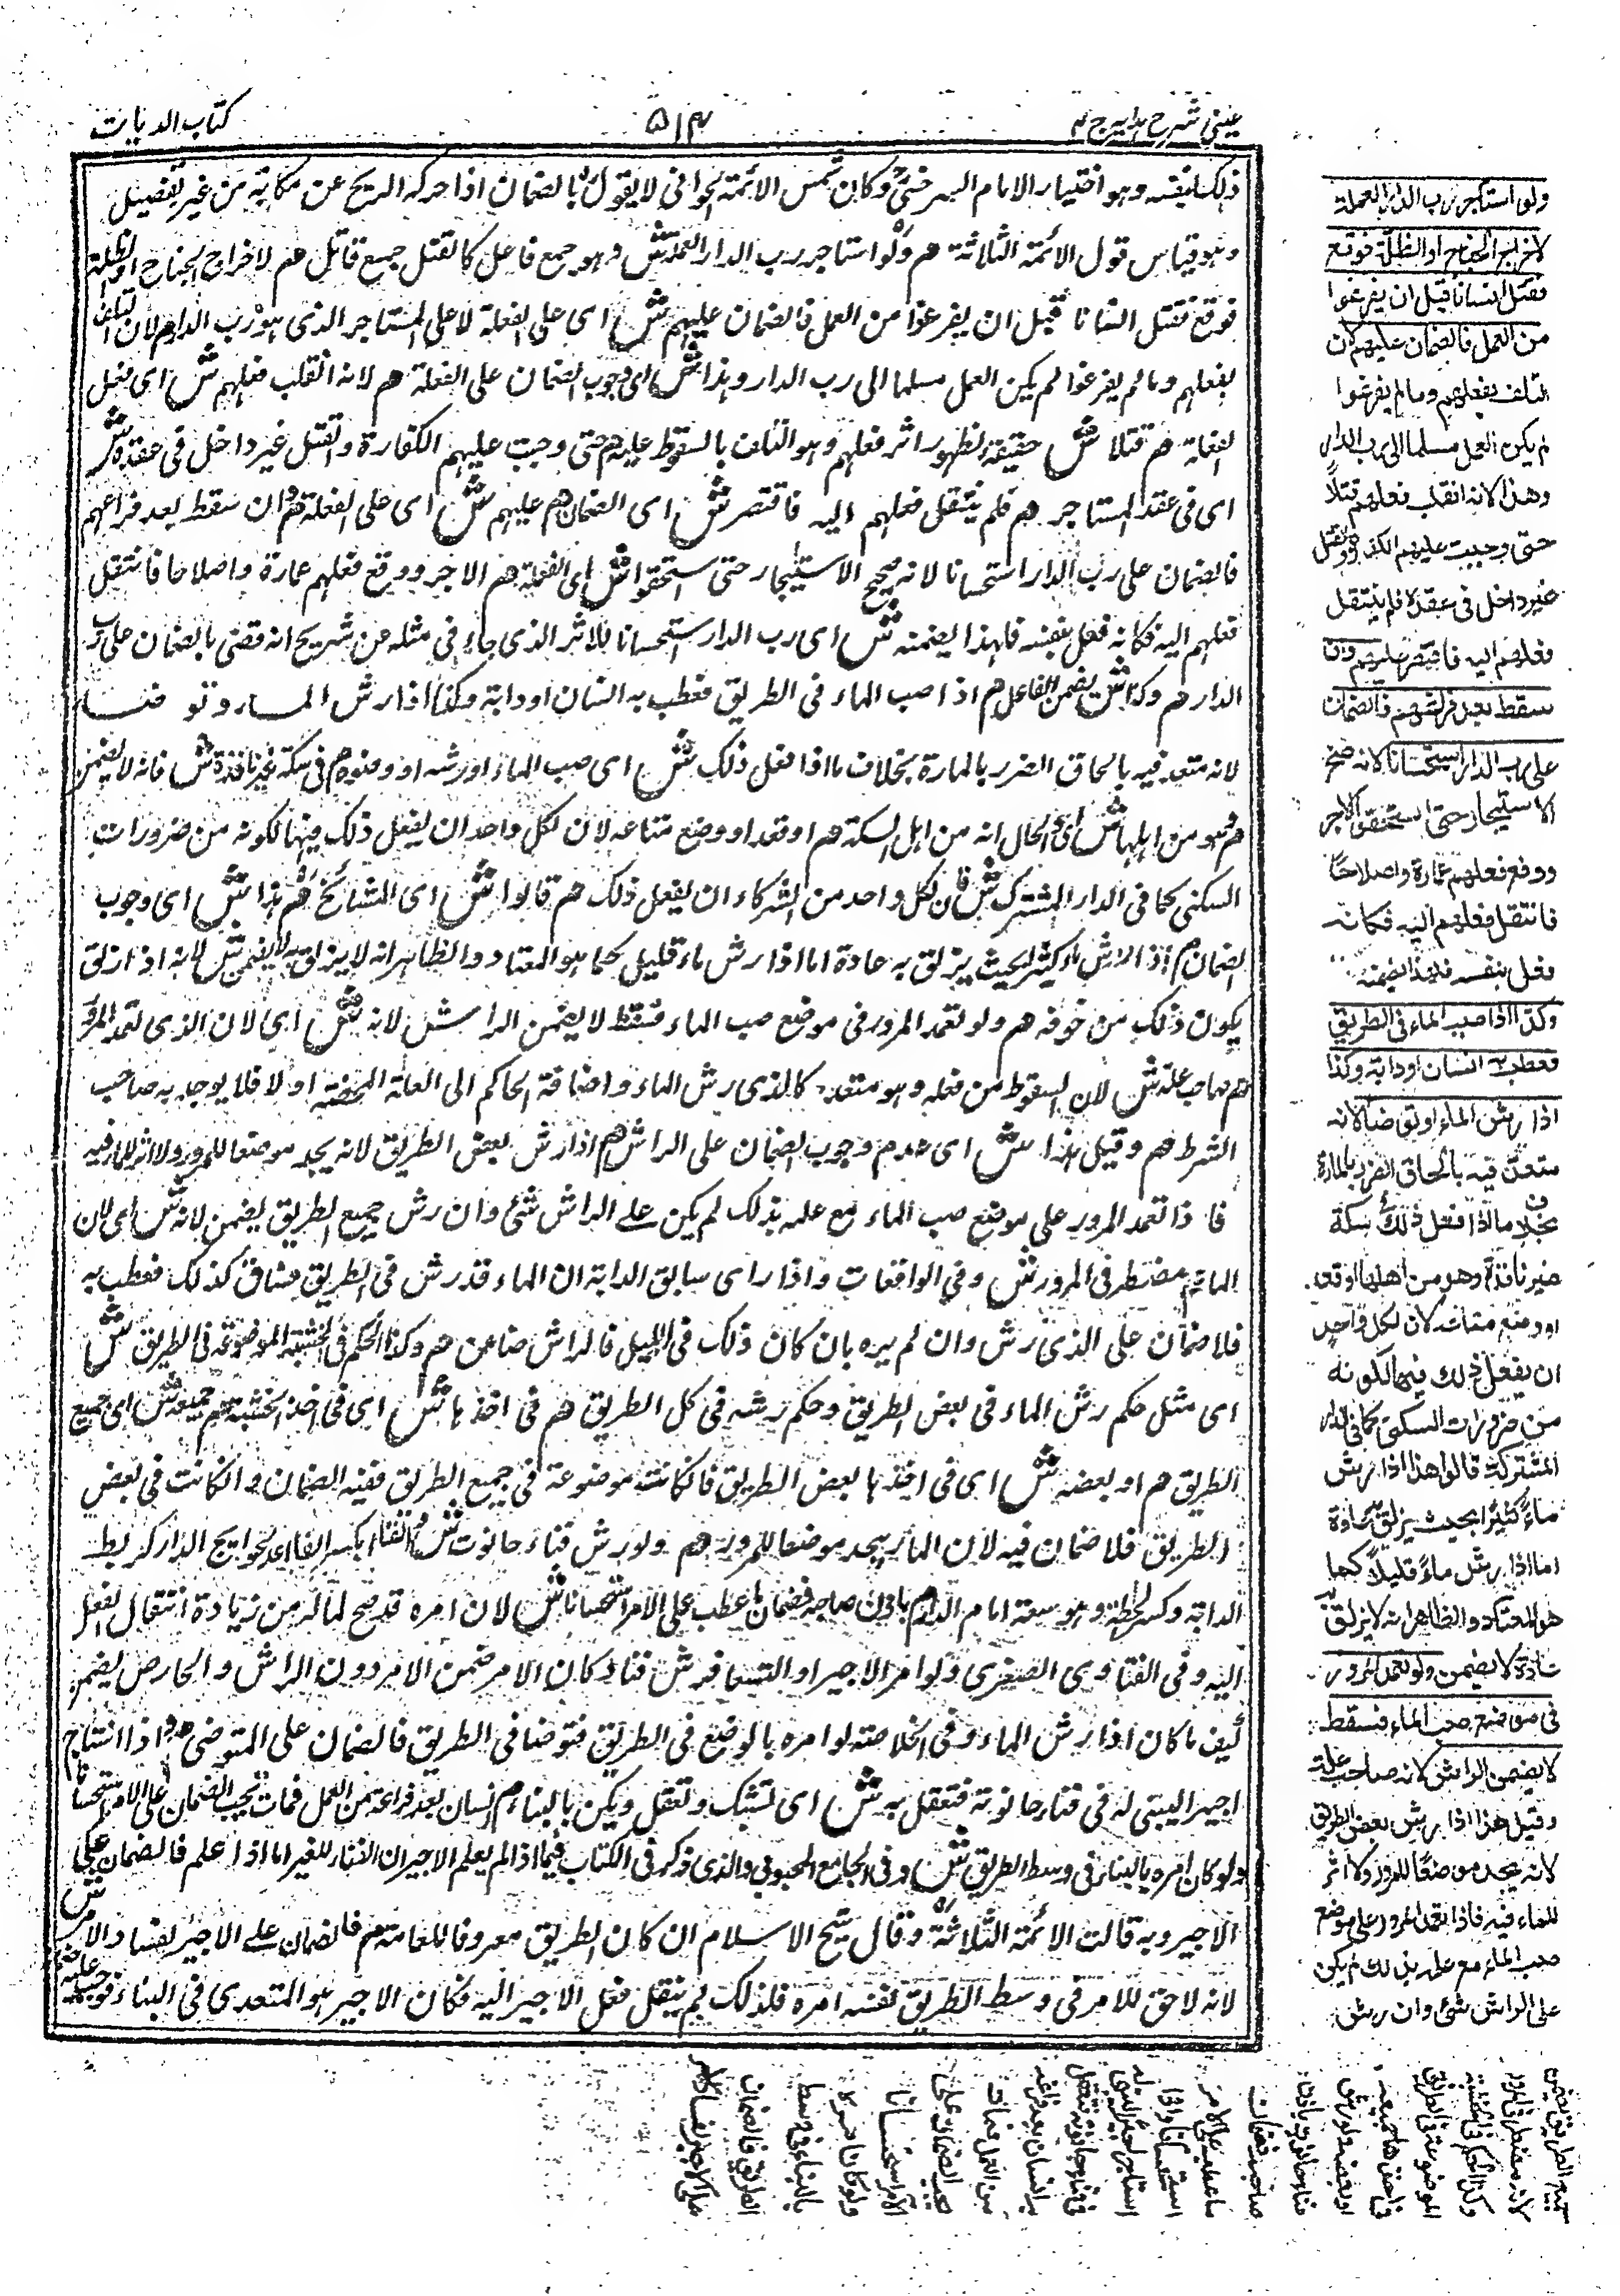 عینی شرح ہدایہ ج ۴
۵۱۴
کتاب الدیات
ذلک لنفسہ وہو اختیار الامام السرخسی وکان شمس الائمۃ الحلوانی لا یقول بالضمان اذا حرکہ الریح عن مکانہ من غیر تفصیل
وہو قیاس قول الائمۃ الثلاثۃ ھم ولو استاجر رب الدار الفعلۃ ش وہو جمع فاعل کالقتل جمع قاتل ھم لاخراج الجناح او الظلۃ
فوقع فقتل انسانا قبل ان یفرغوا من العمل فالضمان علیہم ش ای علی الفعلۃ لا علی المستاجر الذی ہو رب الدار ھم لان التلف
بفعلہم وما لم یفرغوا لم یکن العمل مسلما الی رب الدار وہذا ش ای وجوب الضمان علی الفعلۃ ھم لانہ انقلب فعلہم ش ای فعل
الفعلۃ ھم قتلا ش حقیقۃ لظہور اثر فعلہم وہو التلف بالسقوط علیہ ھم حتی وجبت علیہم الکفارۃ والقتل غیر داخل فی عقدہ ش
ای فی عقد المستاجر ھم فلم ینتقل فعلہم الیہ فاقتصر ش ای الضمان ھم علیہم ش ای علی الفعلۃ ھم وان سقط بعد فراغہم
فالضمان علی رب الدار استحسانا لانہ صح الاستیجار حتی استحقوا ش ای الفعلۃ ھم الاجر ووقع فعلہم عمارۃ واصلاحا فانتقل
فعلہم الیہ فکانہ فعل بنفسہ فلہذا یضمنہ ش ای رب الدار استحسانا للاثر الذی جاء فی مثلہ عن شریح انہ قضی بالضمان علی رب
الدار ھم وکذا ش یضمن الفاعل ھم اذا صب الماء فی الطریق فعطب بہ انسان او دابۃ وکذا اذا رش الماء او توضا
لانہ متعد فیہ بالحاق الضرر بالمارۃ بخلاف ما اذا فعل ذلک ش ای صب الماء او رشہ او وضوءہ ھم فی سکۃ غیر نافذۃ ش فانہ لا یضمن
ھم وہو من اہلہا ش ای والحال انہ من اہل السکۃ ھم او قعد او وضع متاعہ لان لکل واحد ان یفعل ذلک فیہا لکونہ من ضرورات
السکنی کما فی الدار المشترک ش فان لکل واحد من الشرکاء ان یفعل ذلک ھم قالوا ش ای المشائخ ھم ہذا ش ای وجوب
الضمان ھم اذا رش ماء کثیرا بحیث یزلق بہ عادۃ اما اذا رش ماء قلیل کما ہو المعتاد والظاہر انہ لا یزلق بہ لا یضمن ش لانہ اذا زلق
یکون ذلک من خوفہ ھم ولو تعمد المرور فی موضع صب الماء فسقط لا یضمن الراش لانہ ش ای لان الذی تعمد المرور
ھم صاحب علۃ ش لان السقوط من فعلہ وہو متعد کالذی رش الماء واضافۃ الحاکم الی العلۃ المحضۃ اولا فلا یوجد بہ صاحب
الشرط ھم وقیل ہذا ش ای عدم وجوب الضمان علی الراش ھم اذا رش بعض الطریق لانہ یجد موضعا للمرور ولا اثر للماء فیہ
فاذا تعمد المرور علی موضع صب الماء مع علمہ بذلک لم یکن علی الراش شئ وان رش جمیع الطریق یضمن لانہ ش ای لان
المار ھم مضطر فی المرور ش وفی الواقعات واذا رای سابق الدابۃ ان الماء قد رش فی الطریق فساق کذلک فعطب بہ
فلا ضمان علی الذی رش وان لم یرہ بان کان ذلک فی اللیل فالراش ضامن ھم وکذا الحکم فی الخشبۃ الموضوعۃ فی الطریق ش
ای مثل حکم رش الماء فی بعض الطریق وحکم رشہ فی کل الطریق ھم فی اخذہا ش ای فی اخذ الخشبۃ ھم جمیعہ ش ای جمیع
الطریق ھم او بعضہ ش ای فی اخذہا بعض الطریق فالکانت موضوعۃ فی جمیع الطریق ففیہ الضمان والکانت فی بعض
الطریق فلا ضمان فیہ لان المار یجد موضعا للمرور ھم ولو رش فناء حانوت ش الفناء بکسر الفاء اعد لحوائج الدار کربط
الدابۃ وکسر الحطب وہو سعۃ امام الدار ھم باذن صاحبہ فضمان ما عطب علی الامر استحسانا ش لان امرہ قد صح لما لہ من زیادۃ انتقال الفعل
الیہ وفی الفتاوی الصغری ولو امر الاجیر او السقا فرش فناء دکان الامر ضمن الامر دون الراش والحارص یضمن
کیف ما کان اذا رش الماء وفی الخلاصۃ لو امرہ بالوضع فی الطریق فتوضا فی الطریق فالضمان علی المتوضی ھم واذا استاجر
اجیرا لیبنی لہ فی فناء حانوتہ فتعقل بہ ش ای تشبک وتعقل ویکن بالبناء ھم انسان بعد فراغہ من العمل فمات یجب الضمان علی الامر استحسانا
ولو کان امرہ بالبناء فی وسط الطریق ش وفی الجامع المحبوبی والذی ذکر فی الکتاب فیما اذا لم یعلم الاجیر ان الفناء للغیر اما اذا علم فالضمان علی
الاجیر وبہ قالت الائمۃ الثلاثۃ وقال شیخ الاسلام ان کان الطریق معروفا للعامۃ ھم فالضمان علی الاجیر لفساد الامر ش
لانہ لا حق للامر فی وسط الطریق لنفسہ امرہ فلذلک لم ینتقل فعل الاجیر الیہ فکان الاجیر ہو المتعدی فی البناء فوجب علیہ
ولو استاجر رب الدار الفعلۃ
لاخراج الجناح او الظلۃ فوقع
فقتل انسانا قبل ان یفرغوا
من العمل فالضمان علیہم لان
التلف بفعلہم وما لم یفرغوا
لم یکن العمل مسلما الی رب الدار
وھذا لانہ انقلب فعلہم قتلاً
حتی وجبت علیہم الکفارۃ والقتل
غیر داخل فی عقدہ فلم ینتقل
فعلہم الیہ فاقتصر علیہم وان
سقط بعد فراغہم فالضمان
علی رب الدار استحسانا لانہ صح
الاستیجار حتی استحقوا الاجر
ووقع فعلہم عمارۃ واصلاحًا
فانتقل فعلہم الیہ فکانہ
فعل بنفسہ فلہذا یضمنہ
وکذا اذا صب الماء فی الطریق
فعطب بہ انسان او دابۃ وکذا
اذا رش الماء او توضا لانہ
متعد فیہ بالحاق الضرر بالمارۃ
بخلاف ما اذا فعل ذلک فی سکۃ
غیر نافذۃ وھو من اھلہا او قعد
او وضع متاعہ لان لکل واحد
ان یفعل ذلک فیہا لکونہ
من ضرورات السکنی کما فی الدار
المشترکۃ قالوا ھذا اذا رش
ماءً کثیرًا بحیث یزلق بہ عادۃ
اما اذا رش ماءً قلیلاً کما
ھو المعتاد والظاھر انہ لا یزلق بہ
عادۃ لا یضمن ولو تعمد المرور
فی موضع صب الماء فسقط
لا یضمن الراش لانہ صاحب علۃ
وقیل ھذا اذا رش بعض الطریق
لانہ یجد موضعًا للمرور ولا اثر
للماء فیہ فاذا تعمد المرور علی موضع
صب الماء مع علمہ بذلک لم یکن
علی الراش شئ وان رش
جمیع الطریق یضمن
لانہ مضطر فی المرور
وکذا الحکم فی الخشبۃ
الموضوعۃ فی الطریق
فی اخذھا جمیعہ
او بعضہ ولو رش
فناء حانوت باذن
صاحبہ فضمان
ما عطب علی الامر
استحسانا واذا
استاجر اجیرا لیبنی لہ
فی فناء حانوتہ فتعقل
بہ انسان بعد فراغہ
من العمل فمات
یجب الضمان علی
الامر استحسانا
ولو کان امرہ
بالبناء فی وسط
الطریق فالضمان
علی الاجیر لفساد الامر